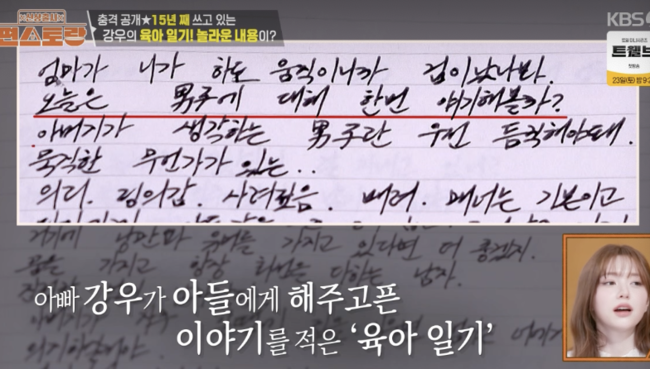 편스토랑
충격 공개★15년 째 쓰고 있는
강우의 육아 일기! 놀라운 내용이?
KBS
트웰브
23일(토) 밤 9:2
엄마가 니가 하도 움직이니까 겁이 났나봐.
오늘은 男子에 대해 한번 얘기해볼까?
아버지가 생각하는 男子란 우선 듬직해야돼.
묵직한 무언가가 있는..
의리. 책임감. 사려깊음. 배려. 매너는 기본이고
거기에 낭만과 유머를 가지고 있다면 더 좋겠지.
꿈을 가지고 항상 최선을 다하는 남자.
아빠 강우가 아들에게 해주고픈
이야기를 적은 ‘육아 일기’